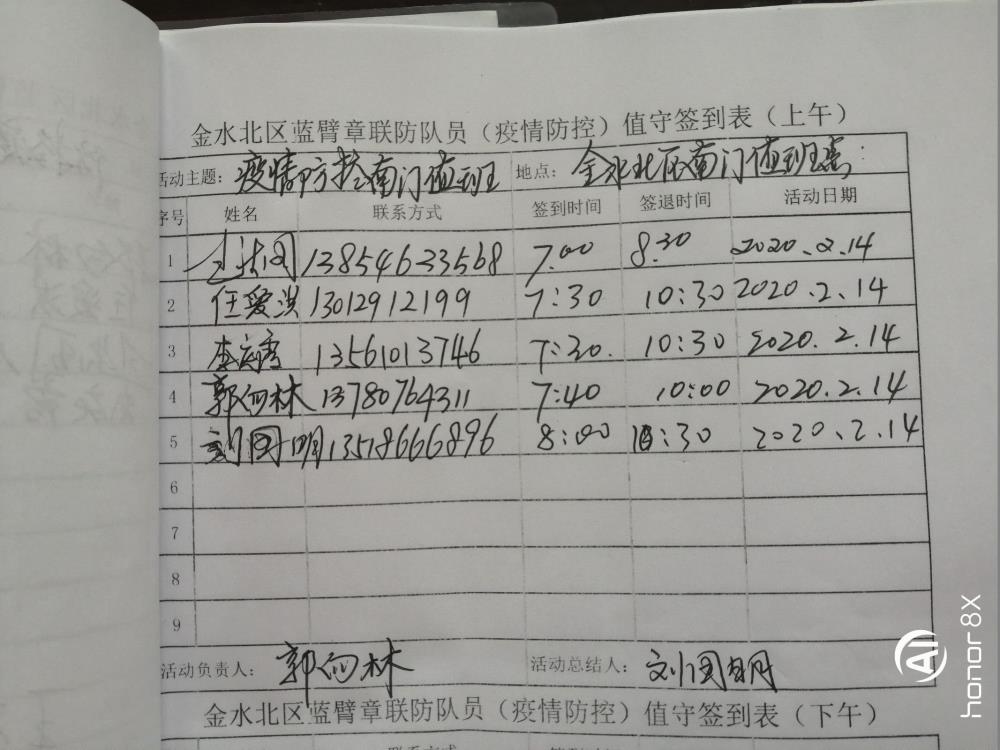 金水北区蓝臂章联防队员（疫情防控）值守签到表（上午）
活动主题：疫情防控南门值班 地点：金水北区南门值班点
序号 姓名 联系方式 签到时间 签退时间 活动日期
1 13854623568 7:00 8:30 2020.2.14
2 任爱洪 13012912199 7:30 10:30 2020.2.14
3 13561013746 7:30 10:30 2020.2.14
4 郭向林 13780764311 7:40 10:00 2020.2.14
5 刘国明 13518666896 8:00 10:30 2020.2.14
6
7
8
9
活动负责人：郭向林 活动总结人：刘国明
金水北区蓝臂章联防队员（疫情防控）值守签到表（下午）
联系方式
AI
honor 8X